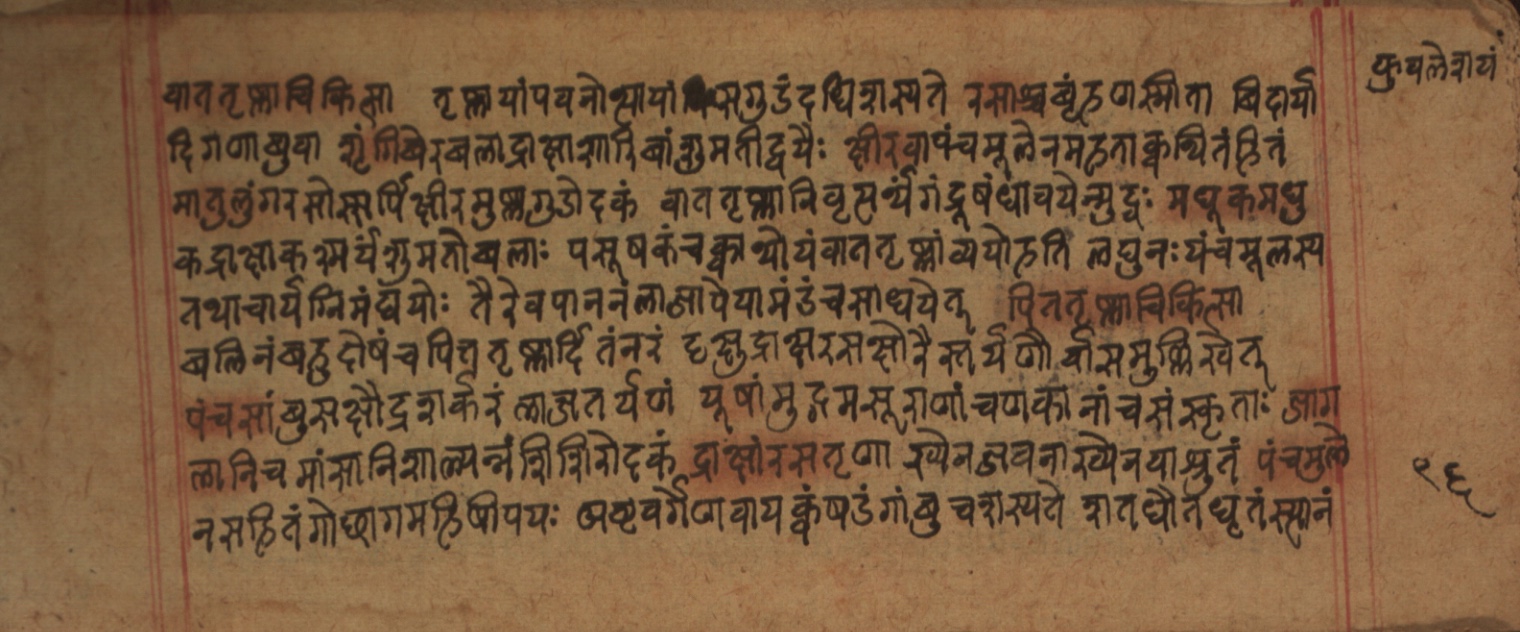 वाततृष्णाचिकित्सा तृष्णायां पवनोत्थायां सगुडं दधि शस्यते रसाश्च बृंहणस्मीता विदार्या
दिगणांबुवा शृंगिबेरबलाद्राक्षाशारिबांशुमतीद्वयैः क्षीरंवापंचमूलेनमहताक्वथितंहितं
मातुलुंगरसोस्सर्पिक्षीरमुष्णगुडोदकं वाततृष्णानिवृत्त्यर्थं मधूकमधु
कद्राक्षाकश्मर्यंशुमतीबलाः परूषकंचक्वाथोयंवाततृष्णांव्यपोहति लघुनःपंचमूलस्य
तथाचार्यग्निमंद्ययोः तैरेवपाननंलाजापेयामंडंचसाधयेत् पित्ततृष्णाचिकित्सा
बलिनंबहुदोषंचपित्ततृष्णार्दितंनरं इक्षुद्राक्षरसक्षीरैस्तर्पणैर्वासमुल्लिखेत्
पंचसांबुसक्षौद्रशर्करंलाजतर्पणं यूषांमुद्गमसूराणांचणकानांचसंस्कृताः जाग
लानिचमांसानिशाल्यन्नंशिशिरोदकं द्राक्षांरसतृणाख्येनजवनाख्येनयाश्रुतं पंचमूले
नसहितंगोछागमहिषीपयः अष्टवर्गेणवायक्वंषडंगांबुचशस्यते शतधौतघृतंस्त्यानं
९६